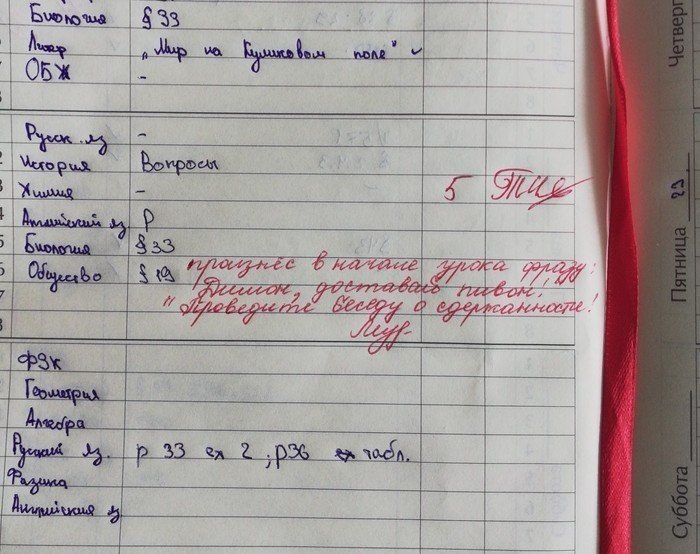 Биология § 33
Литер „Мир на Куликовом поле"
ОБЖ -
Четверг
Русск. яз -
История Вопросы
Химия - 5
Английский яз P
Биология § 33
Общество § 19 произнёс в начале урока фразу:
"Димон, доставай пивон!"
Проведите беседу о сдержанности!
Пятница 23
ФЗК
Геометрия
Алгебра
Русский яз. p 33 ex 2 ; p36 ex табл.
Физика
Английския яз
Суббота